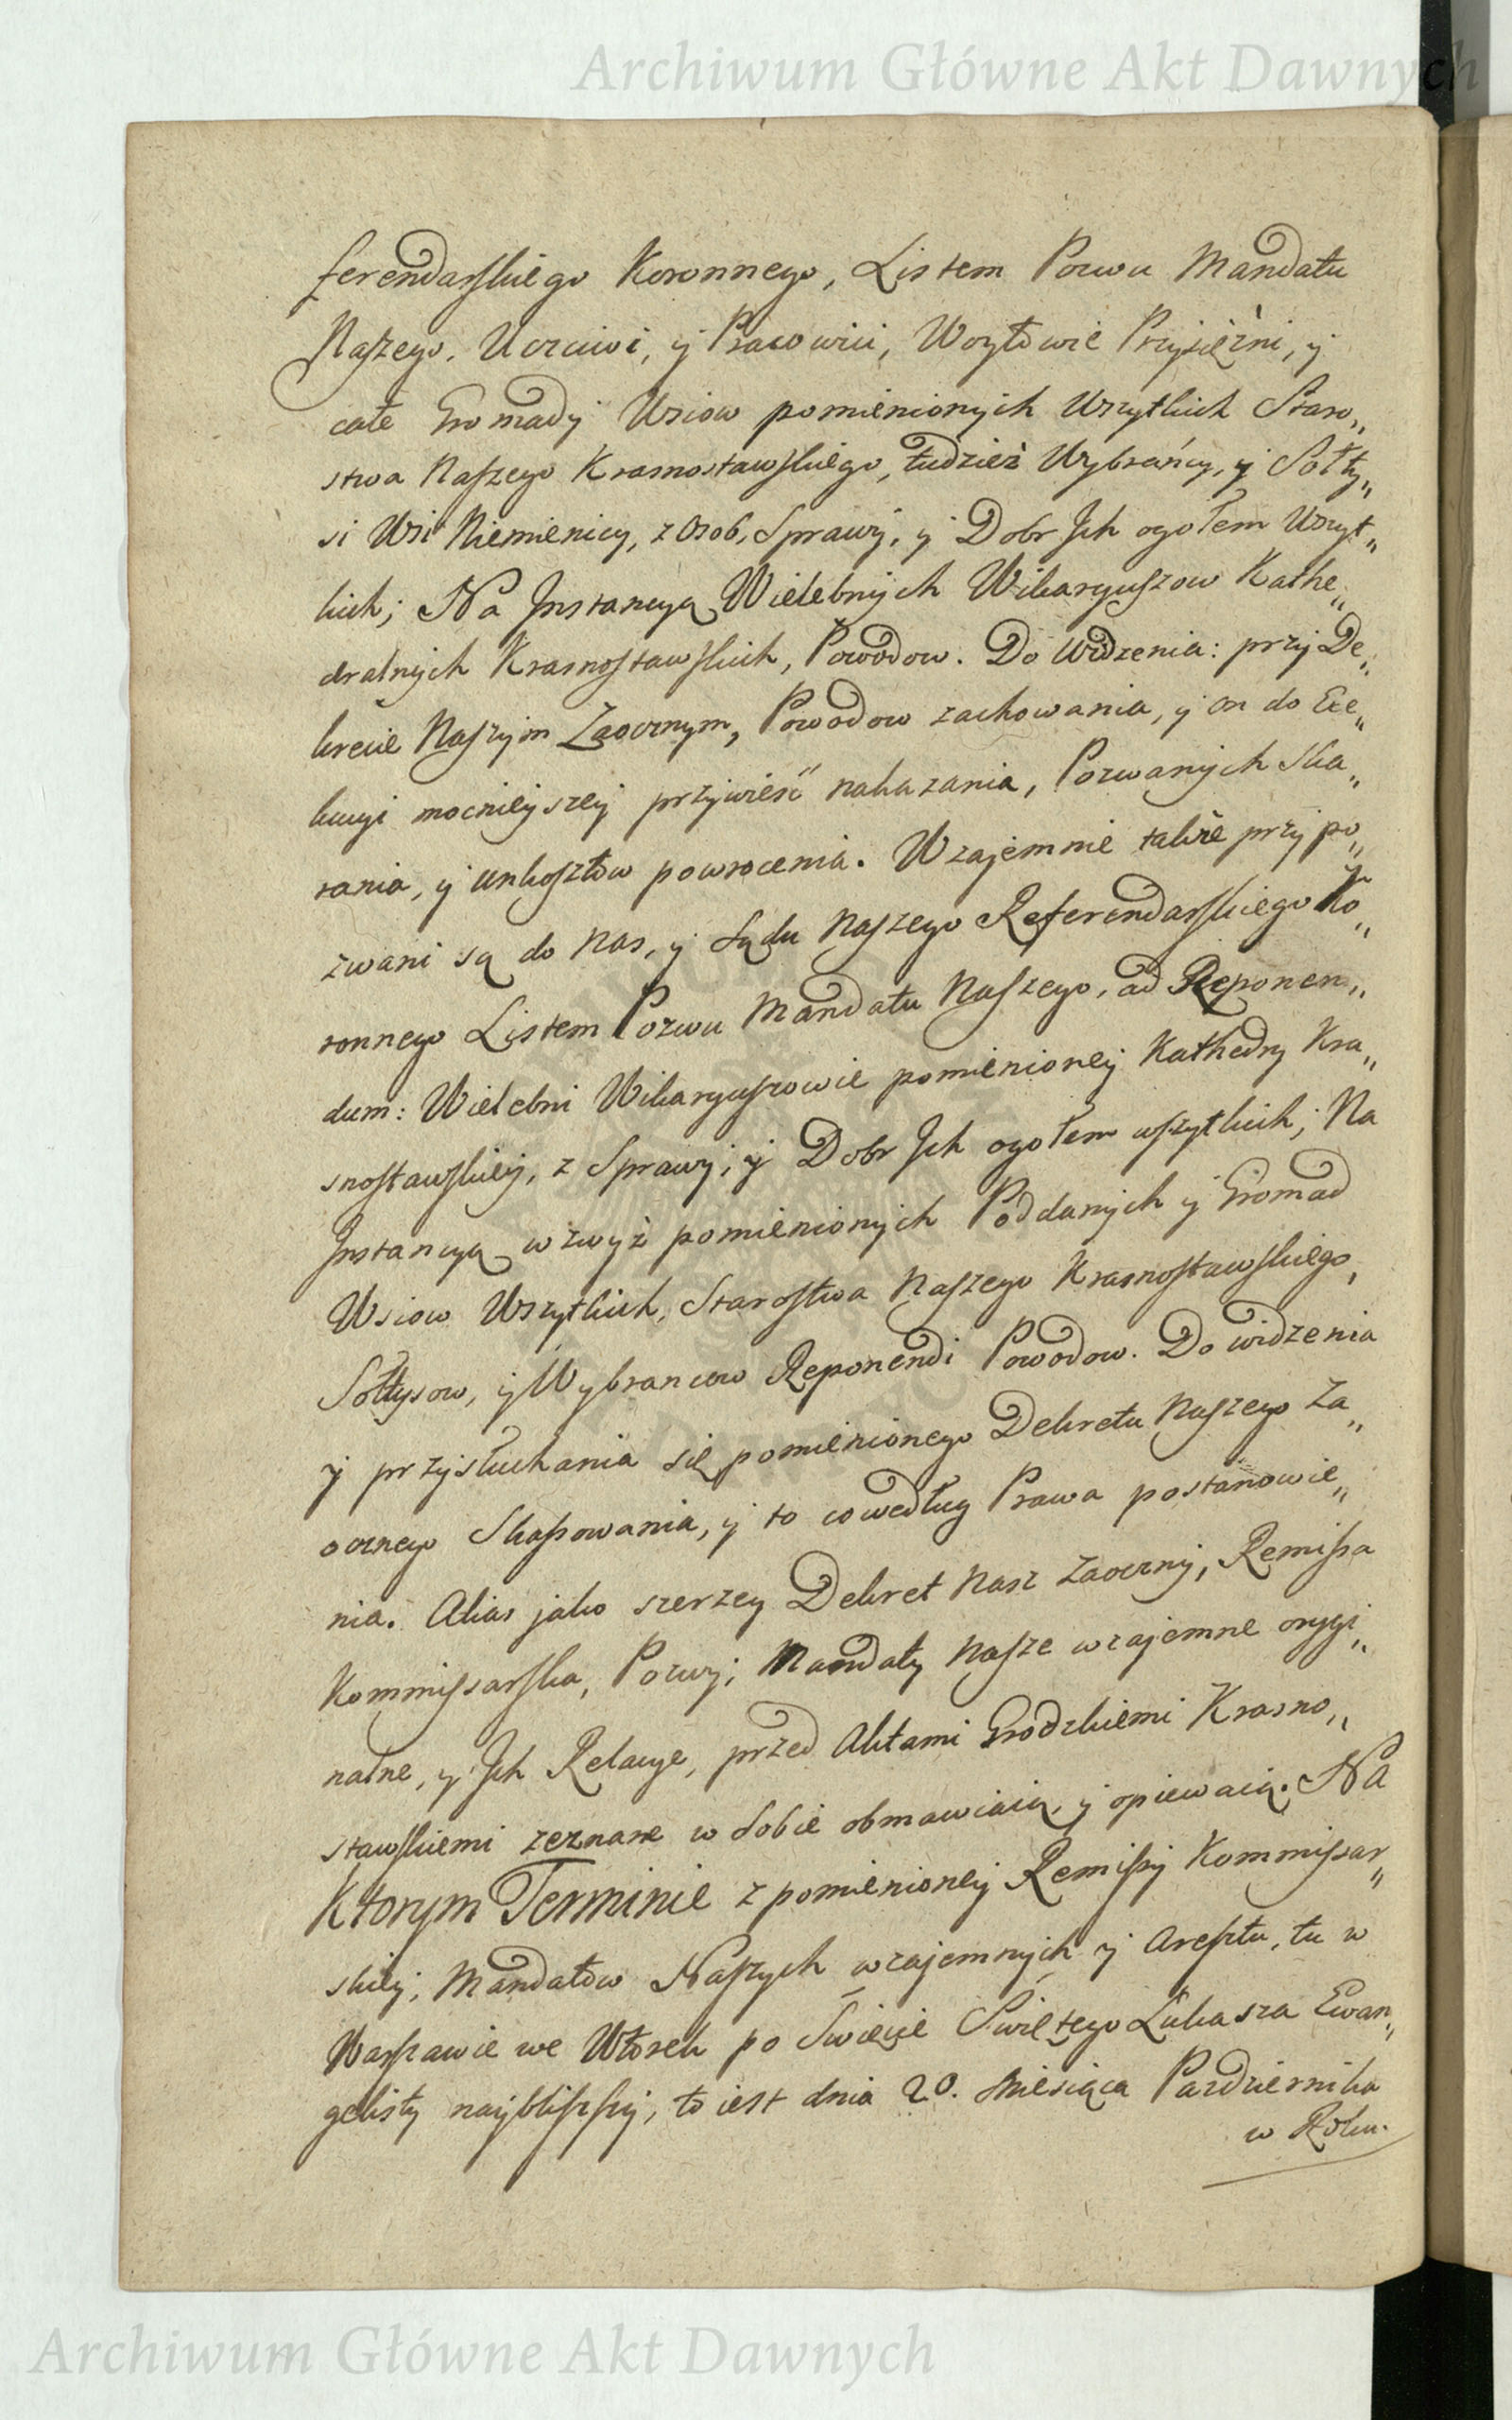 Archiwum Główne Akt Dawnych
ferendarskiego Koronnego, Listem Pozwu Mandatu
Naszego, Uczciwi, y Pracowici, Woytowie Przysiężni, y
całe Gromady Wsiow pomienionych Wszytkich Staro„
stwa Naszego Krasnostawskiego, tudzież Wybrańcy, y Sołty„
si Wsi Niemienicy, z Osob, Sprawy, y Dobr Jch ogołem Wszyt„
kich; Na Jnstancyą Wielebnych Wikaryuszow Kathe„
dralnych Krasnostawskich, Powodow. Do Widzenia: przy De„
krecie Naszym Zaocznym, Powodow zachowania, y on do Exe„
kucyi mocnieyszey przywieść nakazania, Pozwanych Ska„
rania, y unkosztow powrocenia. Wzajemnie także przypo„
zwani są do Nas, y Sądu Naszego Referendarskiego Ko„
ronnego Listem Pozwu Mandatu Naszego, ad Reponen„
dum: Wielebni Wikaryuszowie pomienioney Kathedry Kra„
snostawskiey, z Sprawy, y Dobr Jch ogołem wszytkich; Na
Jnstancyą wzwyż pomienionych Poddanych y Gromad
Wsiow Wszytkich, Starostwa Naszego Krasnostawskiego,
Sołtysow, y Wybrancow Reponendi Powodow. Do widzenia
y przysłuchania się pomienionego Dekretu Naszego Za„
ocznego Skassowania, y to co według Prawa postanowie„
nia. Alias jako szerzey Dekret Nasz Zaoczny, Remissa
Kommissarska, Pozwy, Mandaty Nasze wzajemne orygi„
nalne, y Jch Relacye, przed Aktami Grodzkiemi Krasno„
stawskiemi zeznane w sobie obmawiaią, y opiewaią. Na
Ktorym Terminie z pomienioney Remissy Kommissar„
skiey, Mandatow Naszych wzajemnych y Aresztu, tu w
Warszawie we Wtorek po Święcie Świętego Łukasza Ewan„
gelisty nayblizszy, to iest dnia 20. Miesiąca Pazdziernika
w Roku.
Archiwum Główne Akt Dawnych